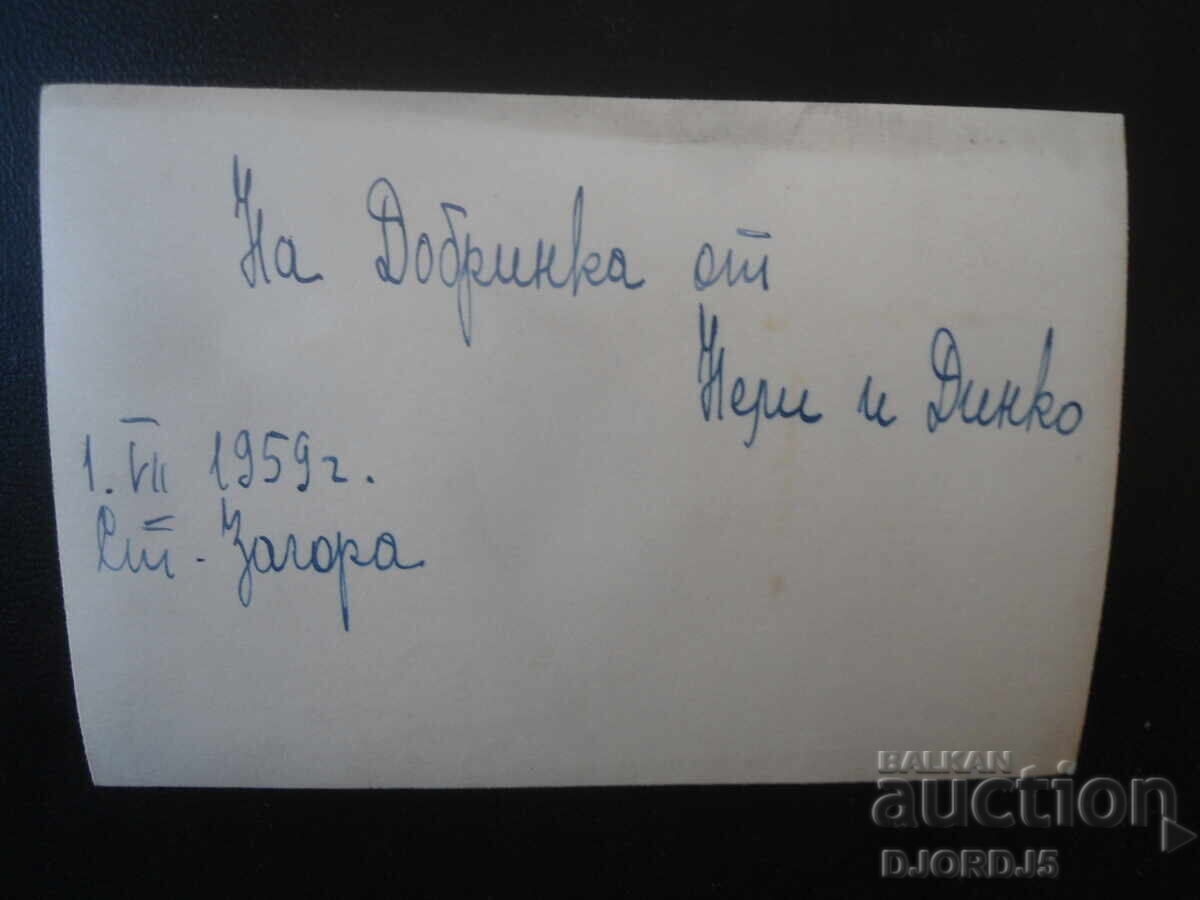 На Добринка от
Нери и Динко
1. VII 1959 г.
Ст. Загора
BALKAN
auction
DJORDJ5